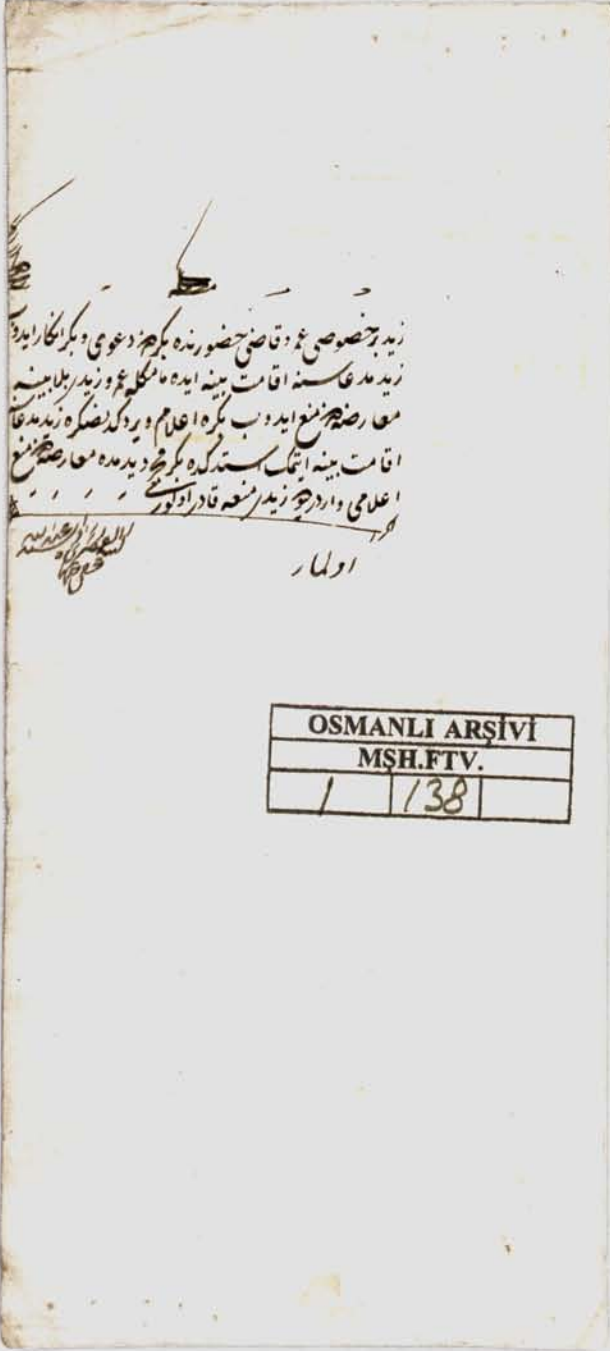 زید بر خصوصی عمرو قاضی حضورنده بکردن دعوی و بکر انکار ایدوب
زید مدعاسنه اقامت بینه ایده مامکله عمرو زیدی بلا بینه
معارضه‌دن منع ایدوب بکره اعلام ویردکدنصکره زید مدعاسنه
اقامت بینه ایتمک استدکده بکر مجرد یدمده معارضه‌دن منع
اعلامی واردر دیو زیدی منعه قادر اولورمی
اولماز
OSMANLI ARŞİVİ
MŞH.FTV.
1 138